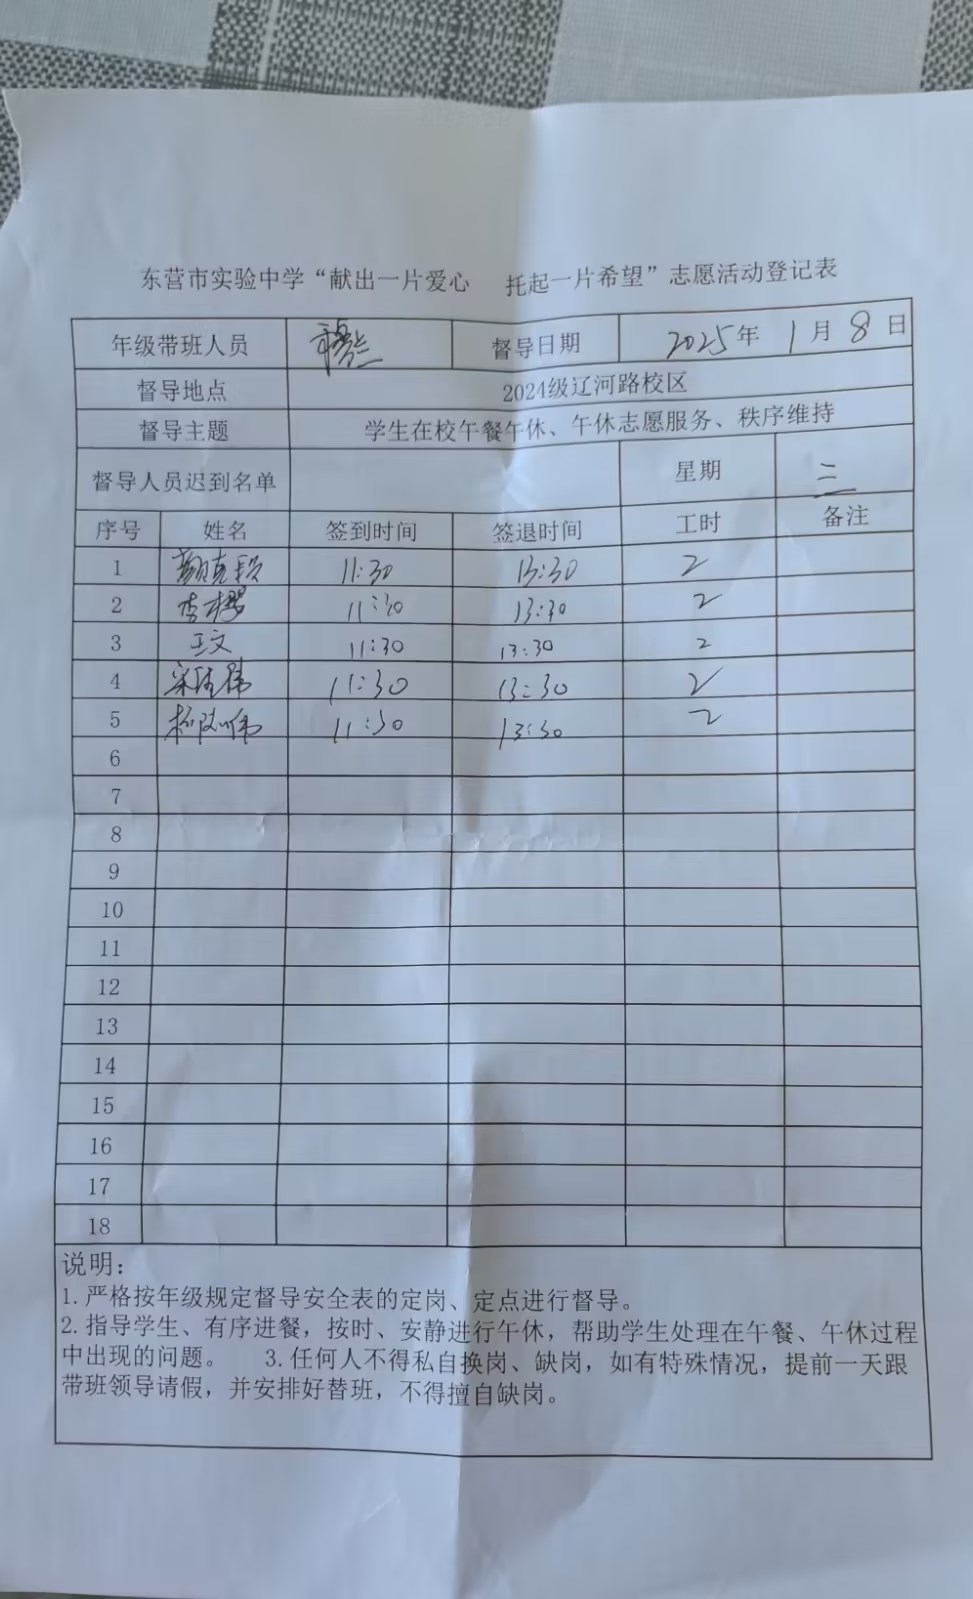 东营市实验中学“献出一片爱心 托起一片希望”志愿活动登记表
年级带班人员 督导日期 2025年1月8日
督导地点 2024级辽河路校区
督导主题 学生在校午餐午休、午休志愿服务、秩序维持
督导人员迟到名单 星期 三
序号 姓名 签到时间 签退时间 工时 备注
1 11:30 13:30 2
2 李樱 11:30 13:30 2
3 王文 11:30 13:30 2
4 11:30 13:30 2
5 11:30 13:30 2
6
7
8
9
10
11
12
13
14
15
16
17
18
说明：
1.严格按年级规定督导安全表的定岗、定点进行督导。
2.指导学生、有序进餐，按时、安静进行午休，帮助学生处理在午餐、午休过程
中出现的问题。 3.任何人不得私自换岗、缺岗，如有特殊情况，提前一天跟
带班领导请假，并安排好替班，不得擅自缺岗。